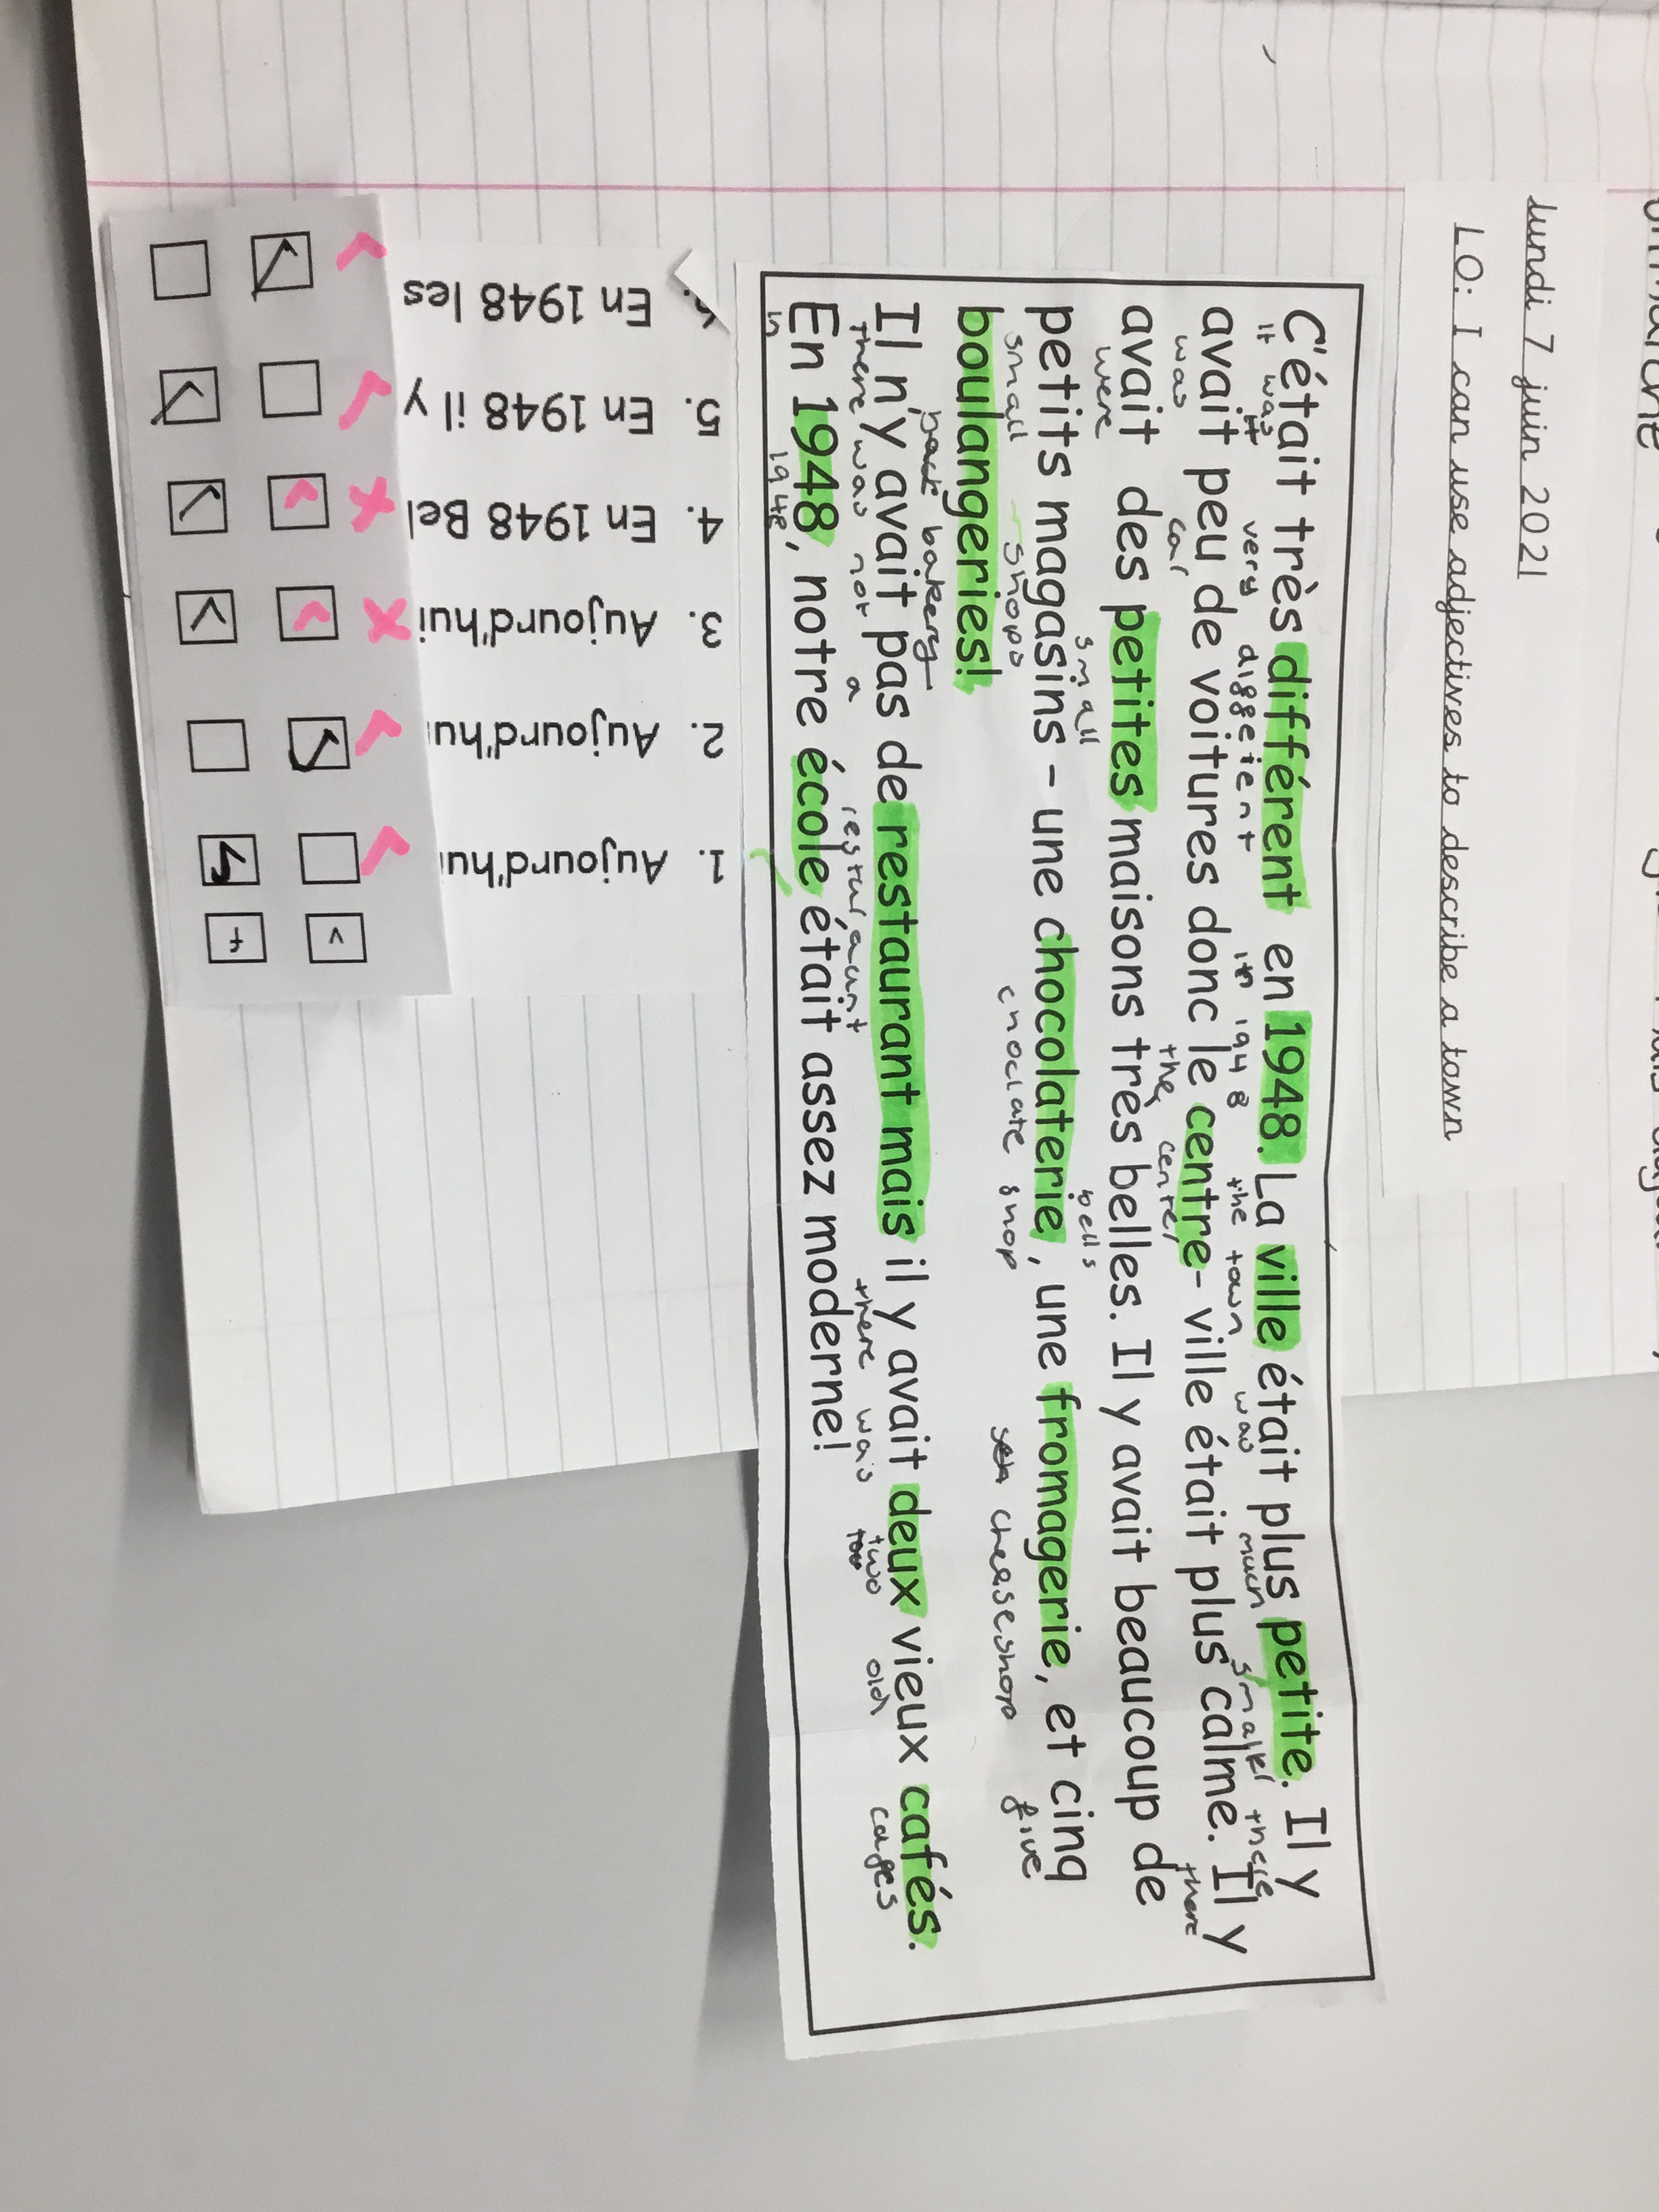 lundi 7 juin 2021
LO: I can use adjectives to describe a town
C'était très différent en 1948. La ville était plus petite. Il y
it was it very different in 1948 the town was much smaller there
avait peu de voitures donc le centre-ville était plus calme. Il y
was car the center there
avait des petites maisons très belles. Il y avait beaucoup de
were small bells
petits magasins – une chocolaterie, une fromagerie, et cinq
small shops choclate shop cheese shop five
boulangeries!
bakery
Il n'y avait pas de restaurant mais il y avait deux vieux cafés.
there was not a resturaunt there was two old cafes
En 1948, notre école était assez moderne!
in 1948
v f
1. Aujourd'hu
2. Aujourd'hu
3. Aujourd'hui
4. En 1948 Bel
5. En 1948 il y
En 1948 les